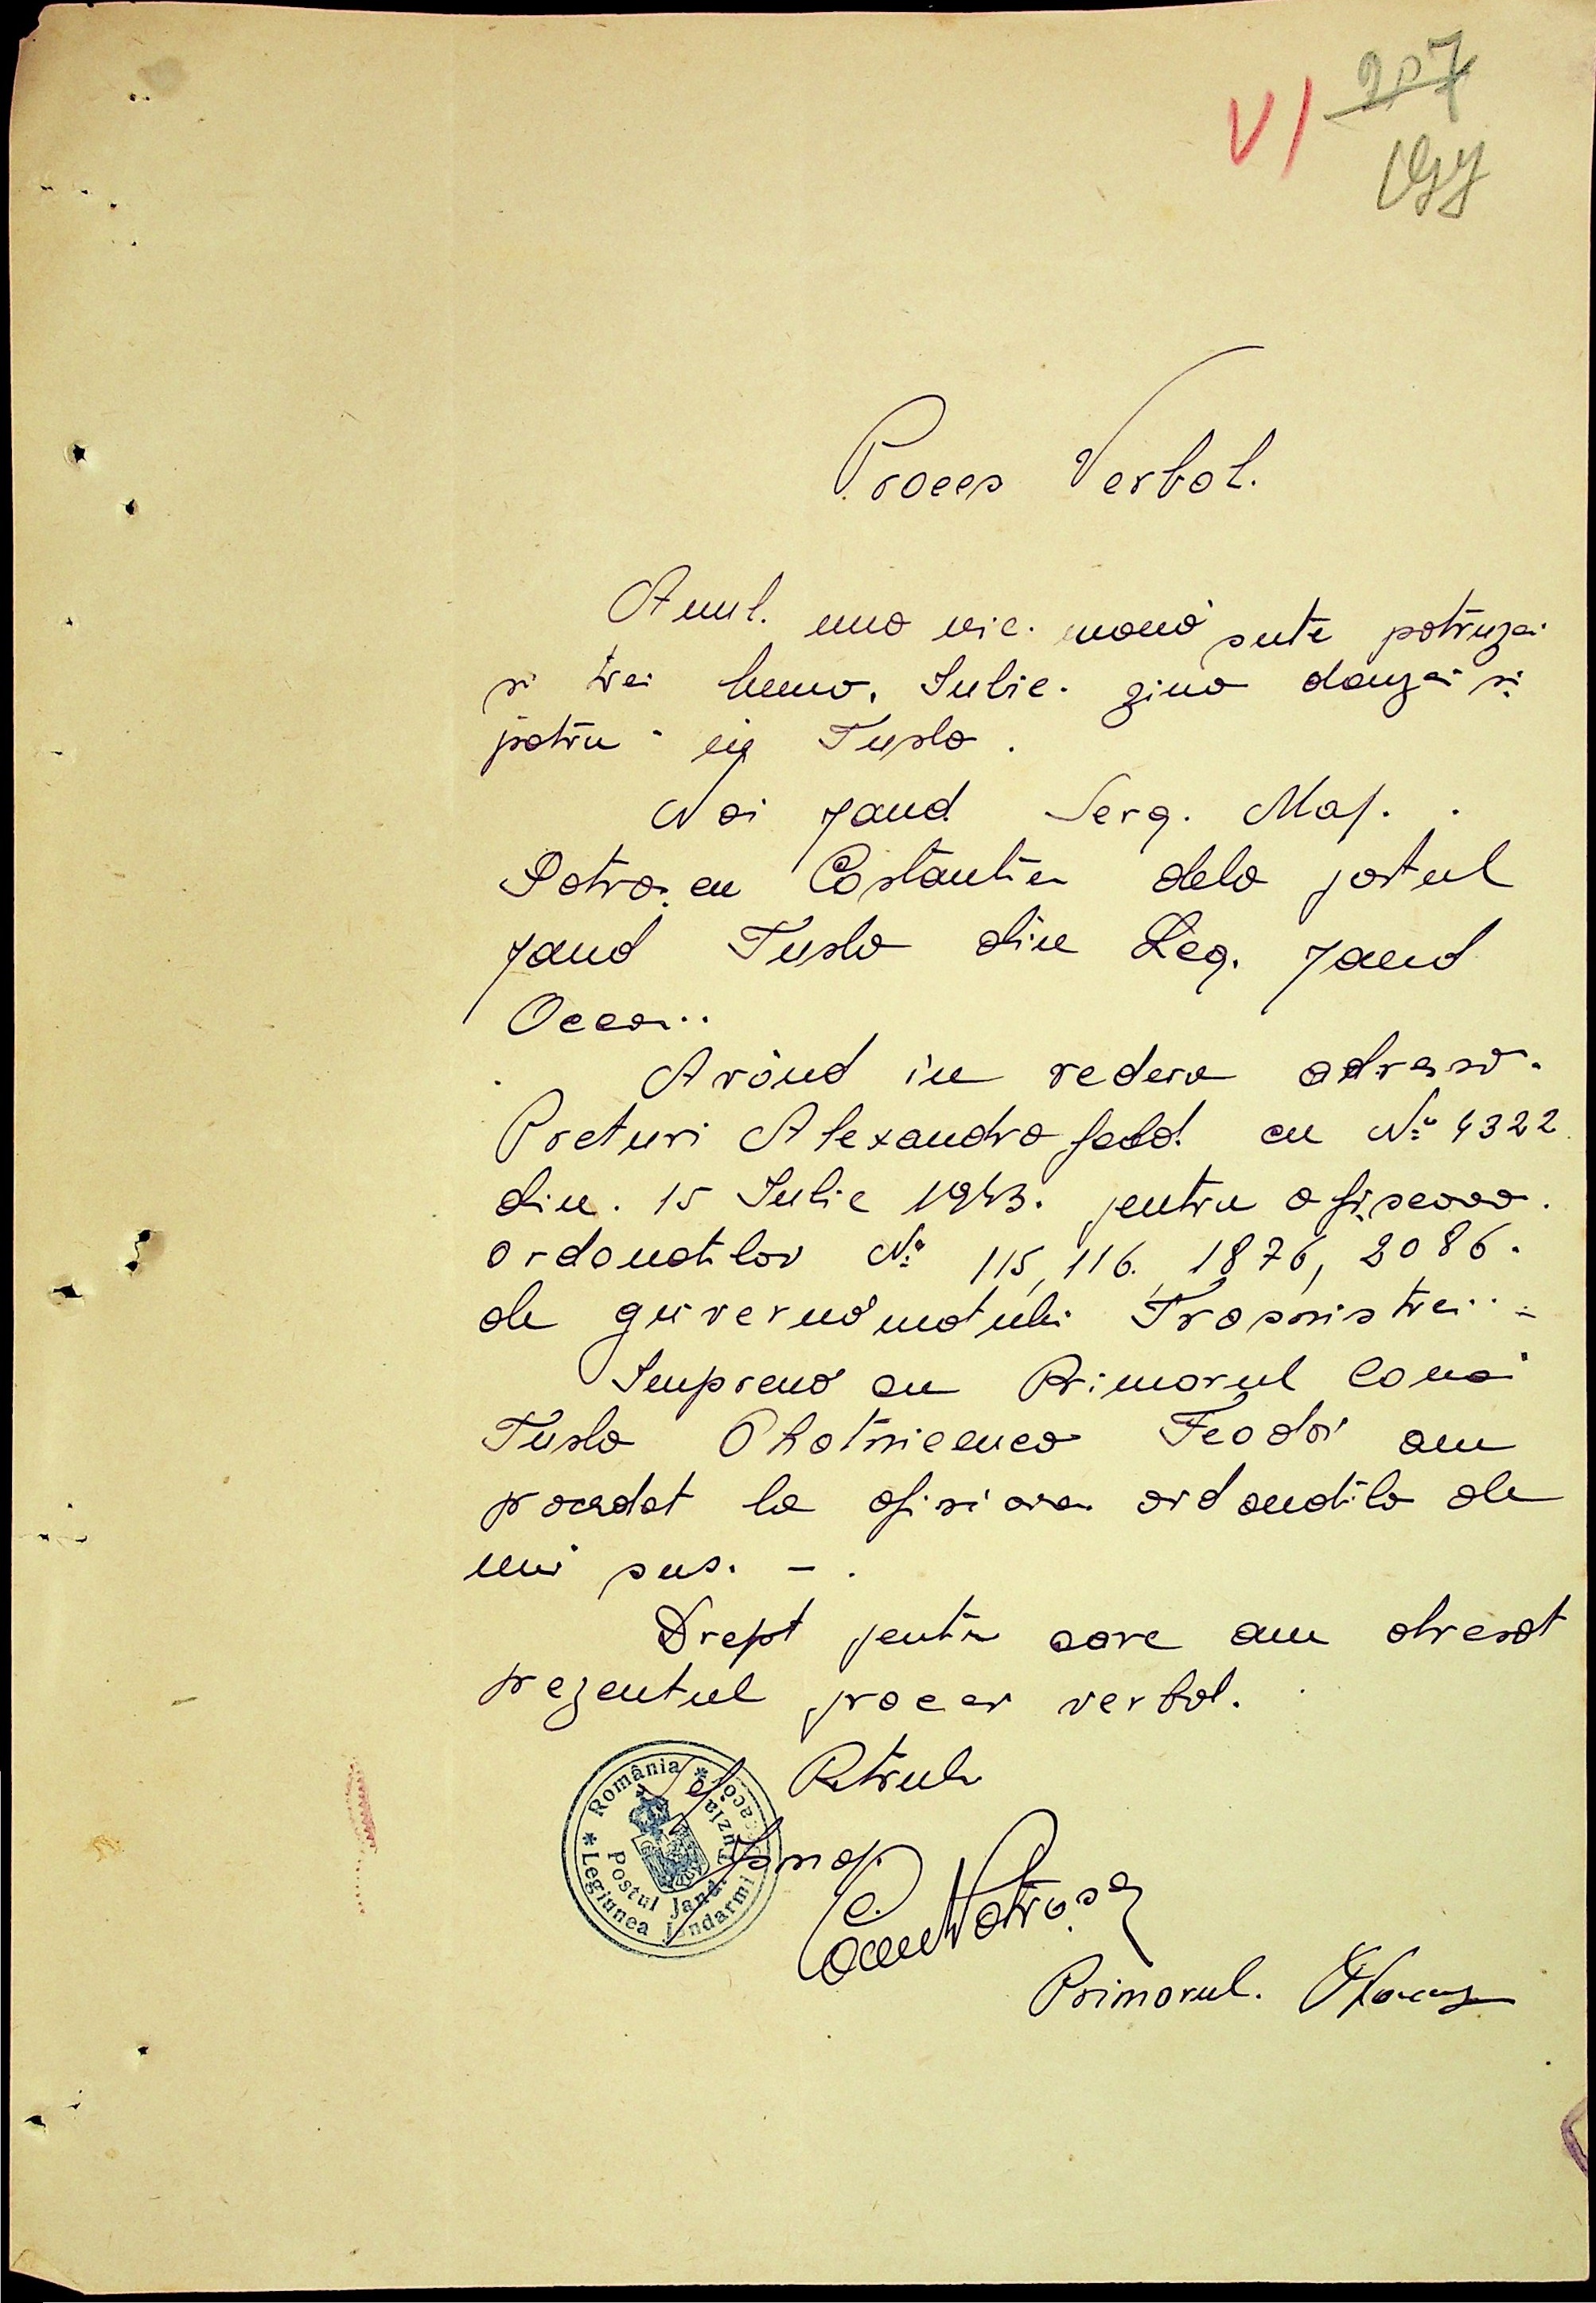 207
VI
Proces Verbal.
Anul. una mie. nouă sute patruzei
si trei luna. Iulie. ziua douzei si
patru in Tusla.
Noi Jand Serg. Maj.
Patrașcu Costantin dela postul
Jand Tusla din Leg. Jand
Oceac..
Avănd in vedera adresa.
Preturi Alexandrofeld. cu No 4322
din. 15 Iulie 1943. pentru afișearea.
ordonatilor No 115, 116. 1876, 2086.
ale guvernămatului Trasnistrei..
Inpreună cu Primarul comoi
Tusla Ohotnicenco Feodor am
procedat la afisiarea ordonatila ale
mai sus. - .
Drept pentru care am dresat
prezentul proces verbal.
Șef Petrul
Romănia * Oceacov * Legiunea Jandarmi
Postul Jand. Tuzla
Primarul.